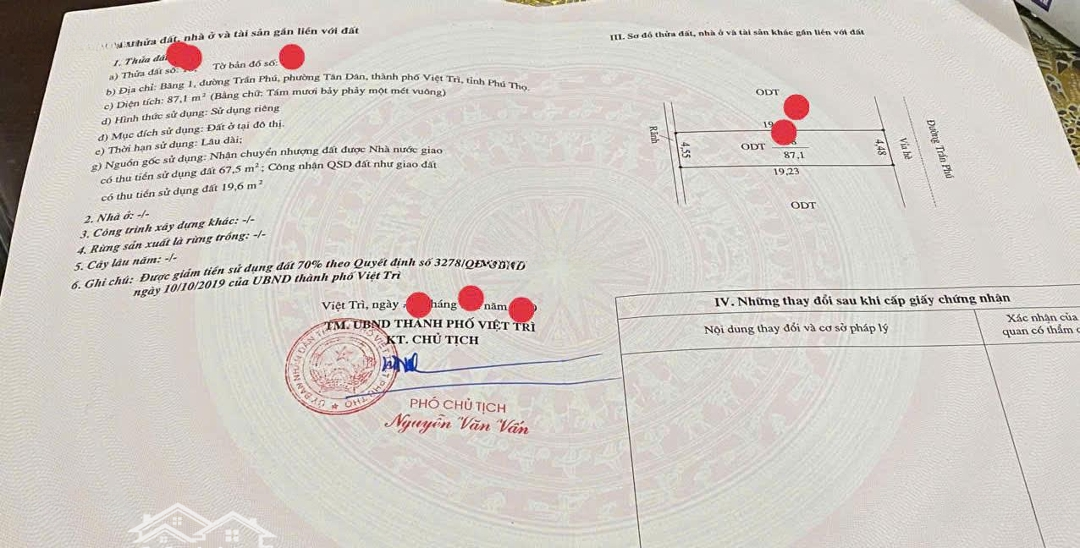 Thửa đất, nhà ở và tài sản gắn liền với đất
1. Thửa đất
a) Thửa đất số: Tờ bản đồ số:
b) Địa chỉ: Băng 1, đường Trần Phú, phường Tân Dân, thành phố Việt Trì, tỉnh Phú Thọ.
c) Diện tích: 87,1 m² (Bằng chữ: Tám mươi bảy phảy một mét vuông)
d) Hình thức sử dụng: Sử dụng riêng
đ) Mục đích sử dụng: Đất ở tại đô thị.
e) Thời hạn sử dụng: Lâu dài;
g) Nguồn gốc sử dụng: Nhận chuyển nhượng đất được Nhà nước giao
có thu tiền sử dụng đất 67,5 m²; Công nhận QSD đất như giao đất
có thu tiền sử dụng đất 19,6 m²
2. Nhà ở: -/-
3. Công trình xây dựng khác: -/-
4. Rừng sản xuất là rừng trồng: -/-
5. Cây lâu năm: -/-
6. Ghi chú: Được giảm tiền sử dụng đất 70% theo Quyết định số 3278/QĐ-UBND
ngày 10/10/2019 của UBND thành phố Việt Trì
Việt Trì, ngày tháng năm
TM. UBND THÀNH PHỐ VIỆT TRÌ
KT. CHỦ TỊCH
PHÓ CHỦ TỊCH
Nguyễn Văn Vấn
III. Sơ đồ thửa đất, nhà ở và tài sản khác gắn liền với đất
ODT
Rãnh
19
4,55
ODT
87,1
4,48
Vỉa hè
Đường Trần Phú
19,23
ODT
IV. Những thay đổi sau khi cấp giấy chứng nhận
Nội dung thay đổi và cơ sở pháp lý
Xác nhận của
quan có thẩm